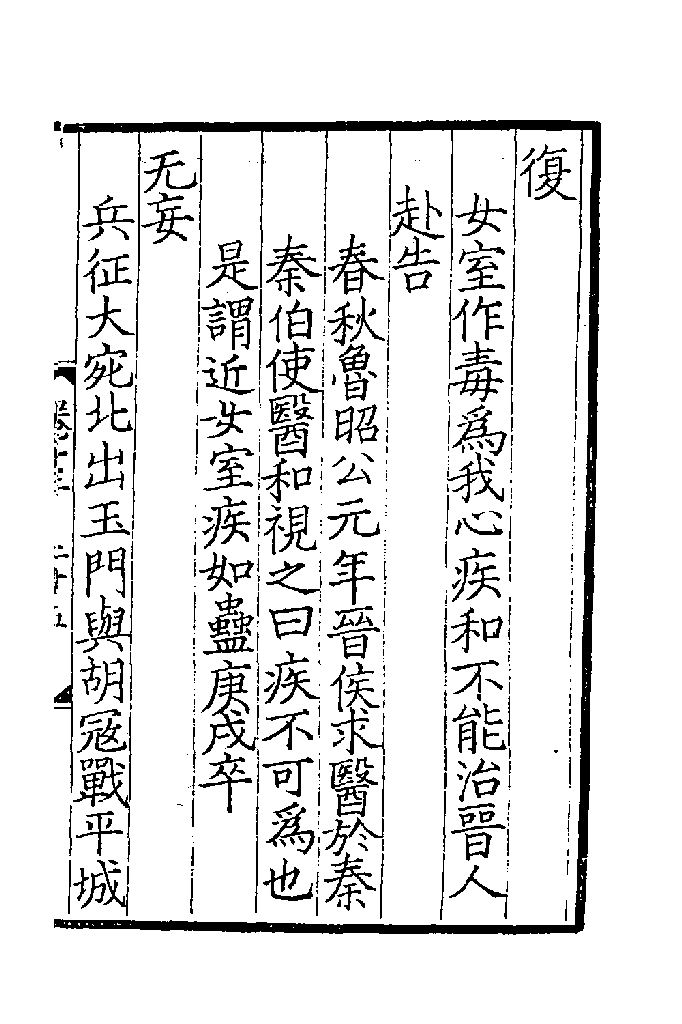 復
女室作毒為我心疾和不能治晉人
赴告
春秋魯昭公元年晉侯求醫於秦
秦伯使醫和視之曰疾不可為也
是謂近女室疾如蠱庚戌卒
无妄
兵征大宛北出玉門與胡冦戰平城
卷十三
二十五